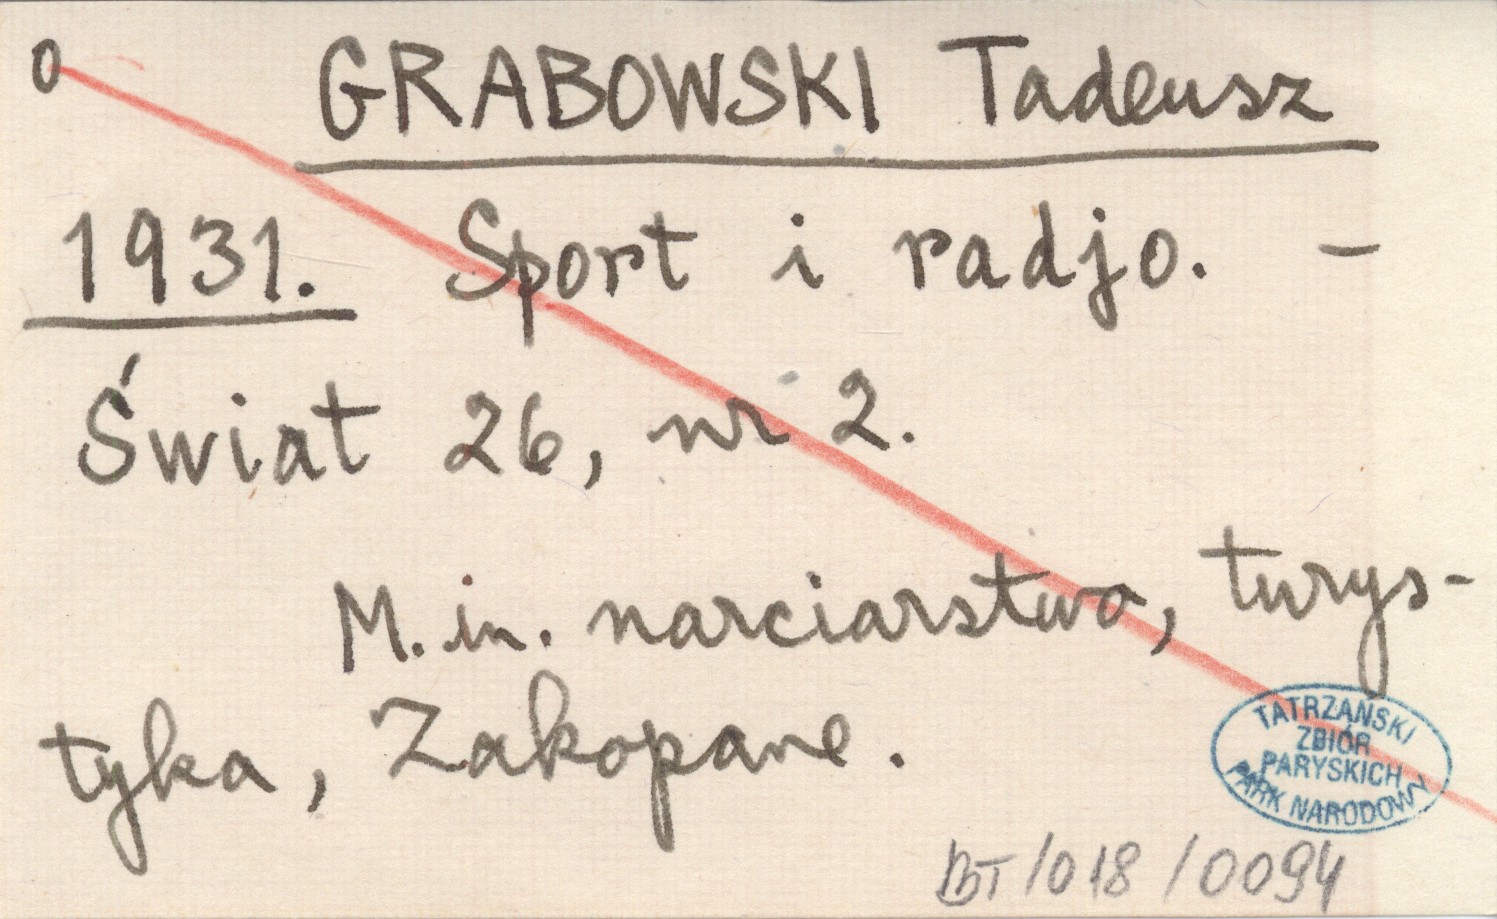 0 GRABOWSKI Tadeusz
1931. Sport i radjo. -
Świat 26, nr 2.
M. in. narciarstwo, turys-
tyka, Zakopane.
TATRZAŃSKI
ZBIÓR
PARYSKICH
PARK NARODOWY
BT/018/0094